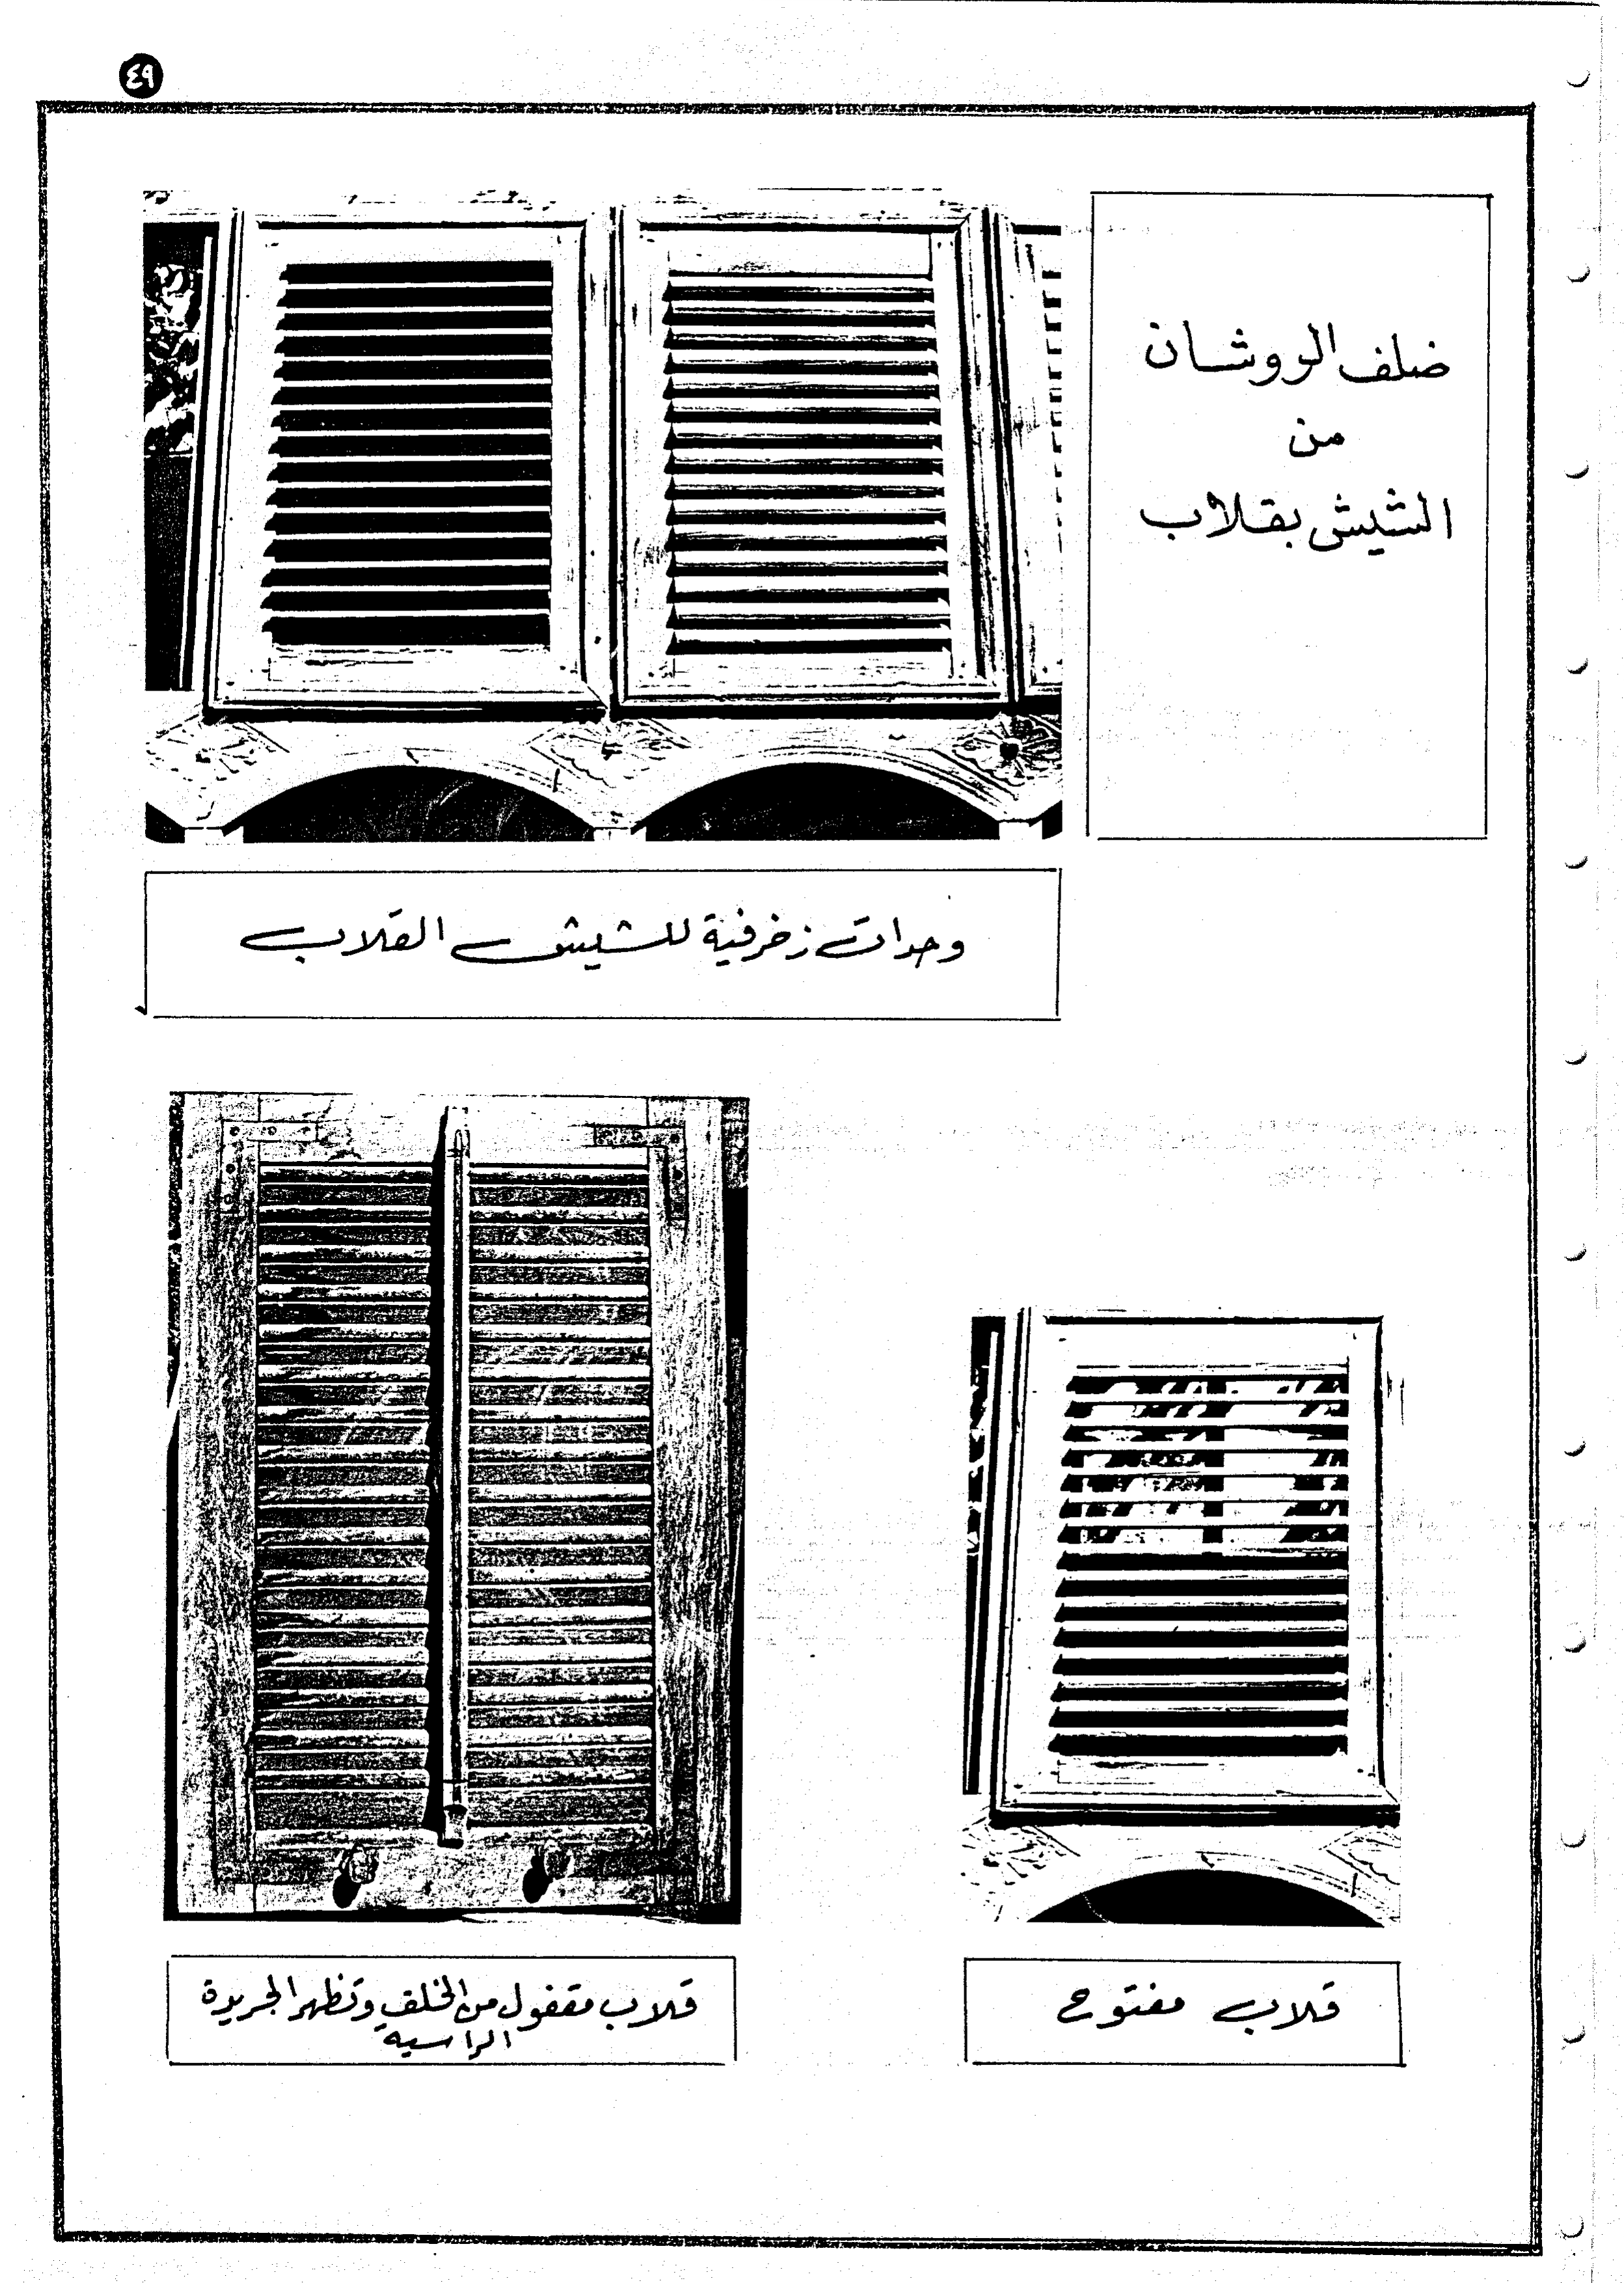 ٤٩
ضلف الروشان
من
الشيش بقلاب
وحدات زخرفية للشيش القلاب
قلاب مفتوح
قلاب مقفول من الخلف وتظهر الجريدة
الراسيه